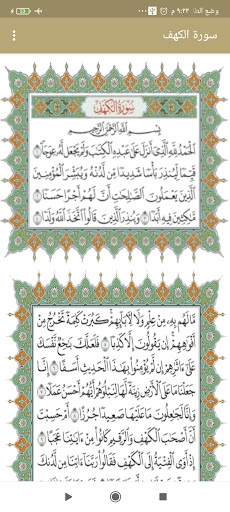 وضع الذا ٩:٢٣ م
سورة الكهف
سُورَةُ الكَهْفِ
بِسْمِ اللَّهِ الرَّحْمَٰنِ الرَّحِيمِ
الْحَمْدُ لِلَّهِ الَّذِي أَنزَلَ عَلَىٰ عَبْدِهِ الْكِتَٰبَ وَلَمْ يَجْعَل لَّهُ عِوَجًا ۝١
قَيِّمًا لِّيُنذِرَ بَأْسًا شَدِيدًا مِّن لَّدُنْهُ وَيُبَشِّرَ الْمُؤْمِنِينَ
الَّذِينَ يَعْمَلُونَ الصَّٰلِحَٰتِ أَنَّ لَهُمْ أَجْرًا حَسَنًا ۝٢
مَّٰكِثِينَ فِيهِ أَبَدًا ۝٣ وَيُنذِرَ الَّذِينَ قَالُوا اتَّخَذَ اللَّهُ وَلَدًا ۝٤
مَّا لَهُم بِهِ مِنْ عِلْمٍ وَلَا لِآبَائِهِمْ كَبُرَتْ كَلِمَةً تَخْرُجُ مِنْ
أَفْوَٰهِهِمْ إِن يَقُولُونَ إِلَّا كَذِبًا ۝٥ فَلَعَلَّكَ بَٰخِعٌ نَّفْسَكَ
عَلَىٰ ءَاثَٰرِهِمْ إِن لَّمْ يُؤْمِنُوا بِهَٰذَا الْحَدِيثِ أَسَفًا ۝٦ إِنَّا
جَعَلْنَا مَا عَلَى الْأَرْضِ زِينَةً لَّهَا لِنَبْلُوَهُمْ أَيُّهُمْ أَحْسَنُ عَمَلًا ۝٧
وَإِنَّا لَجَٰعِلُونَ مَا عَلَيْهَا صَعِيدًا جُرُزًا ۝٨ أَمْ حَسِبْتَ
أَنَّ أَصْحَٰبَ الْكَهْفِ وَالرَّقِيمِ كَانُوا مِنْ ءَايَٰتِنَا عَجَبًا ۝٩
إِذْ أَوَى الْفِتْيَةُ إِلَى الْكَهْفِ فَقَالُوا رَبَّنَا ءَاتِنَا مِن لَّدُنكَ